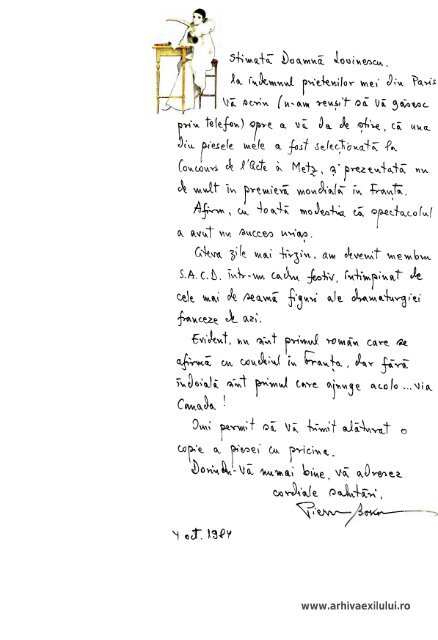 Stimată Doamnă Lovinescu,
la îndemnul prietenilor mei din Paris
Vă scriu (n-am reușit să Vă găsesc
prin telefon) spre a vă da de știre, că una
din piesele mele a fost selecționată la
Concours de l'Acte à Metz, și prezentată nu
de mult în premieră mondială în Franța.
Afirm, cu toată modestia că spectacolul
a avut un succes uriaș.
Câteva zile mai târziu, am devenit membru
S.A.C.D. într-un cadru festiv, întîmpinat de
cele mai de seamă figuri ale dramaturgiei
franceze de azi.
Evident, nu sînt primul român care se
afirmă cu condeiul în Franța, dar fără
îndoială sînt primul care ajunge acolo... via
Canada!
Îmi permit să Vă trimit alăturat o
copie a piesei cu pricina.
Dorindu-Vă numai bine, vă adresez
cordiale salutări,
4 oct. 1984
www.arhivaexilului.ro